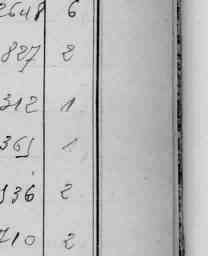 2648 6
827 2
312 1
365 1
936 2
710 2